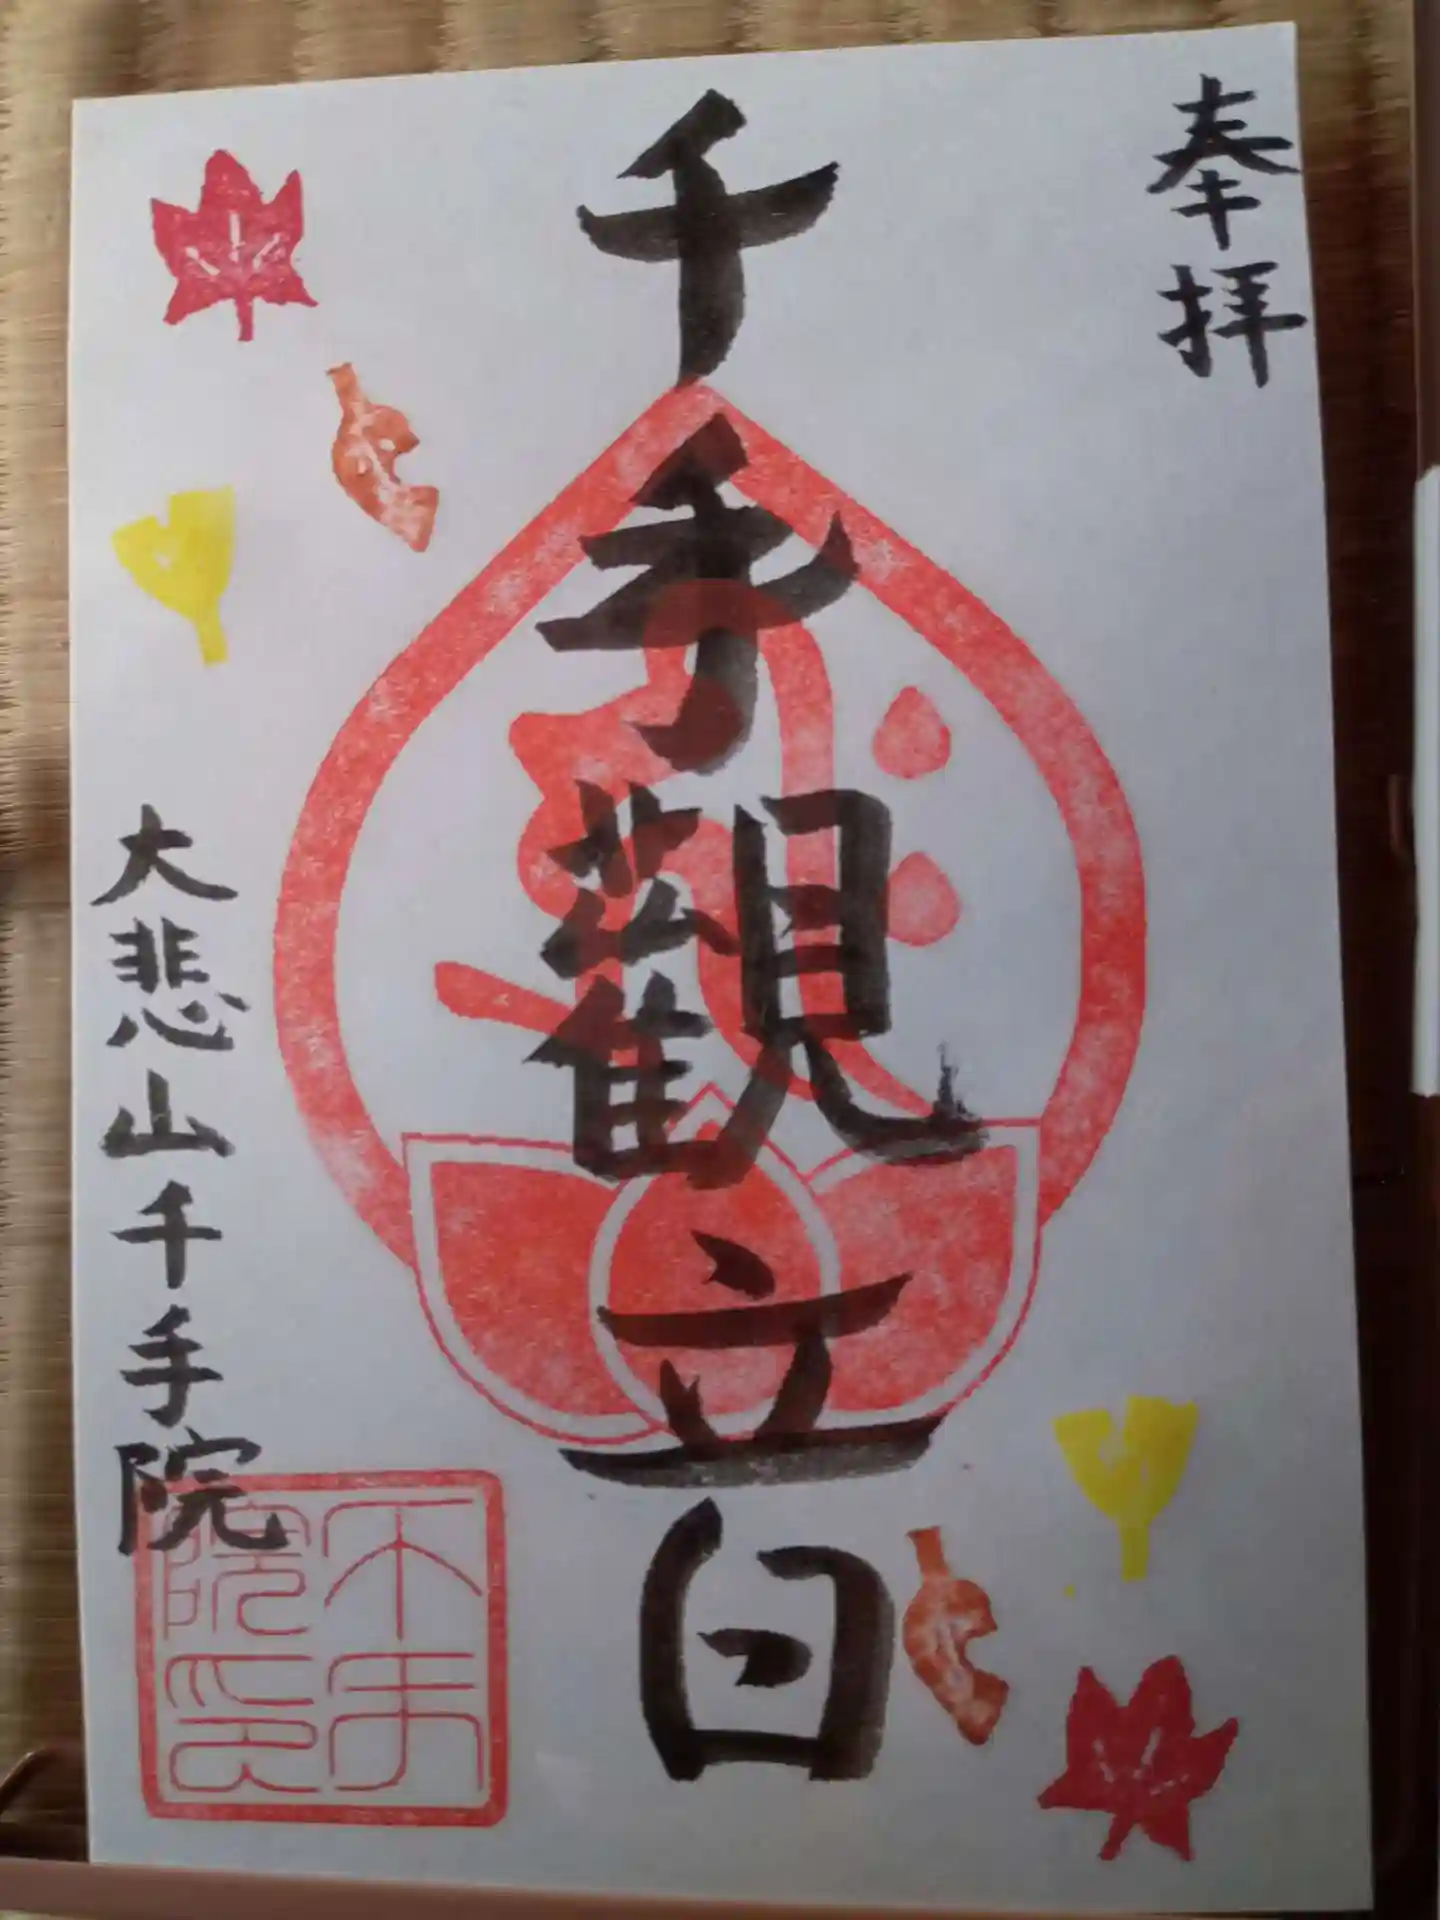 奉拝
千手觀立日
大悲山千手院
千手院印